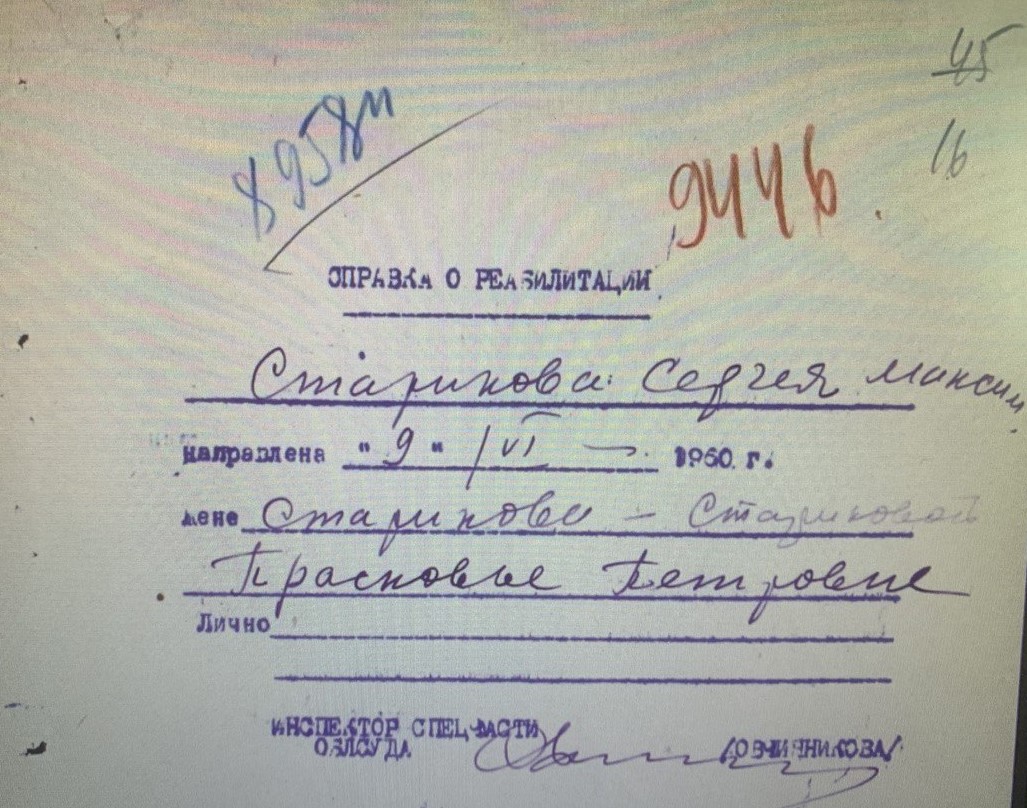 45
16
8958м
9446.
СПРАВКА О РЕАБИЛИТАЦИИ
Старикова Сергея Максим.
направлена "9" /VI 1960. г.
жене Старикова – Стариковой
Прасковье Петровне
Лично
ИНСПЕКТОР СПЕЦЧАСТИ
ОБЛСУДА /ОВЧИННИКОВА/